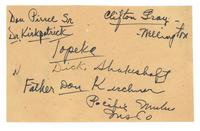 Don Pirrie Sr
Clifton Gray -
Dr. Kirkpatrick
Wellington
Topeka
Dick Shakeshaft
Father Don Kirchner
Pacific Mutu
Ins Co